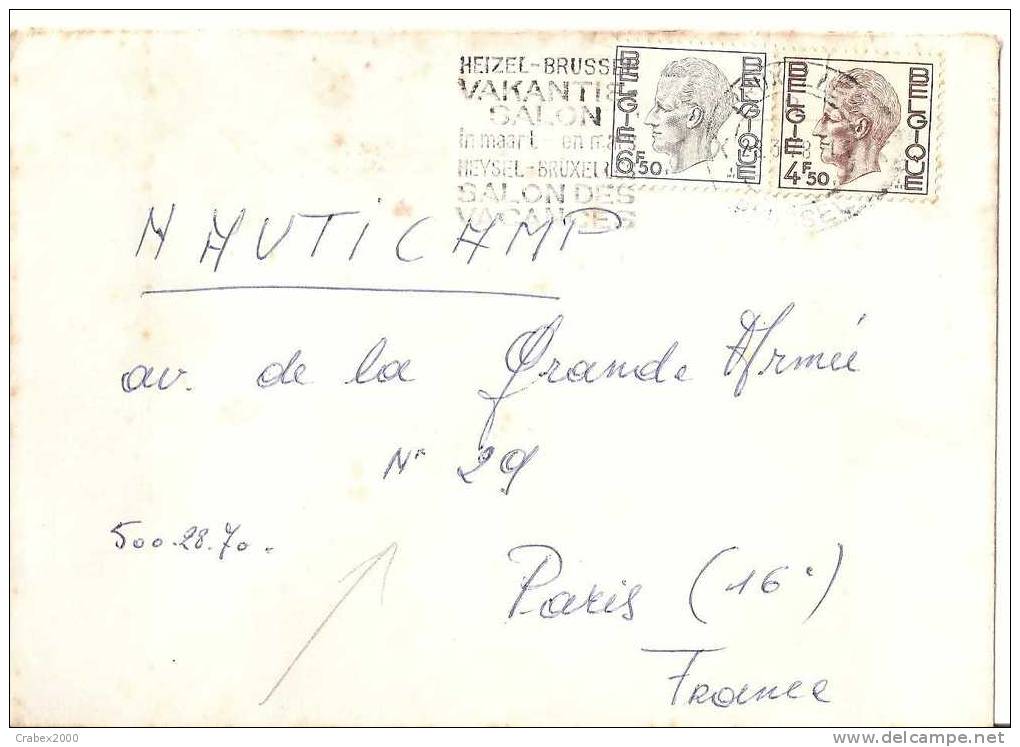 HEIZEL-BRUSSE
VAKANTIE
SALON
in maart - en mars
HEYSEL-BRUXELLES
SALON DES
VACANCES
BELGIE BELGIQUE
6F50
BELGIE BELGIQUE
4F50
NAUTICAMP
av. de la Grande Armée
N° 29
500.28.70.
Paris (16e)
France
Crabex2000
www.delcampe.net